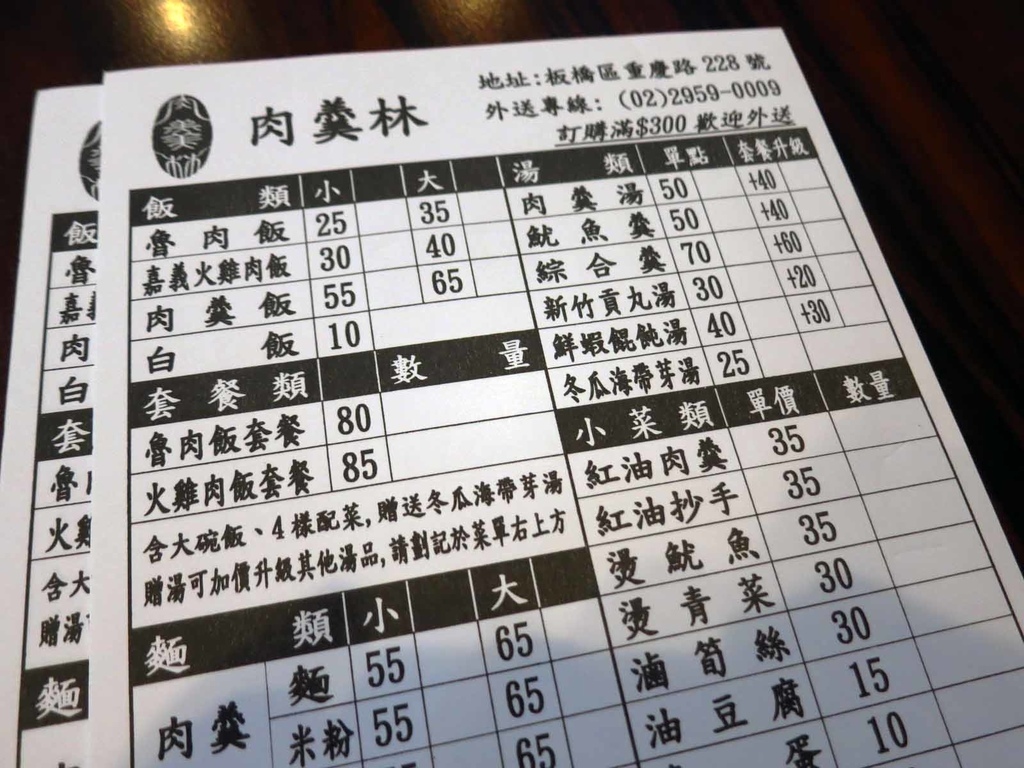 肉羹林
地址:板橋區重慶路 228 號
外送專線: (02)2959-0009
訂購滿$300 歡迎外送
飯類 小 大
魯肉飯 25 35
嘉義火雞肉飯 30 40
肉羹飯 55 65
白飯 10
套餐類 數量
魯肉飯套餐 80
火雞肉飯套餐 85
含大碗飯、4樣配菜,贈送冬瓜海帶芽湯
贈湯可加價升級其他湯品,請劃記於菜單右上方
麵類 小 大
肉羹 麵 55 65
米粉 55 65
65
湯類 單點 套餐升級
肉羹湯 50 +40
魷魚羹 50 +40
綜合羹 70 +60
新竹貢丸湯 30 +20
鮮蝦餛飩湯 40 +30
冬瓜海帶芽湯 25
小菜類 單價 數量
紅油肉羹 35
紅油抄手 35
燙魷魚 35
燙青菜 30
滷筍絲 30
油豆腐 15
蛋 10
飯
魯
嘉義
肉
白
套
魯
火雞
含大
贈湯
麵